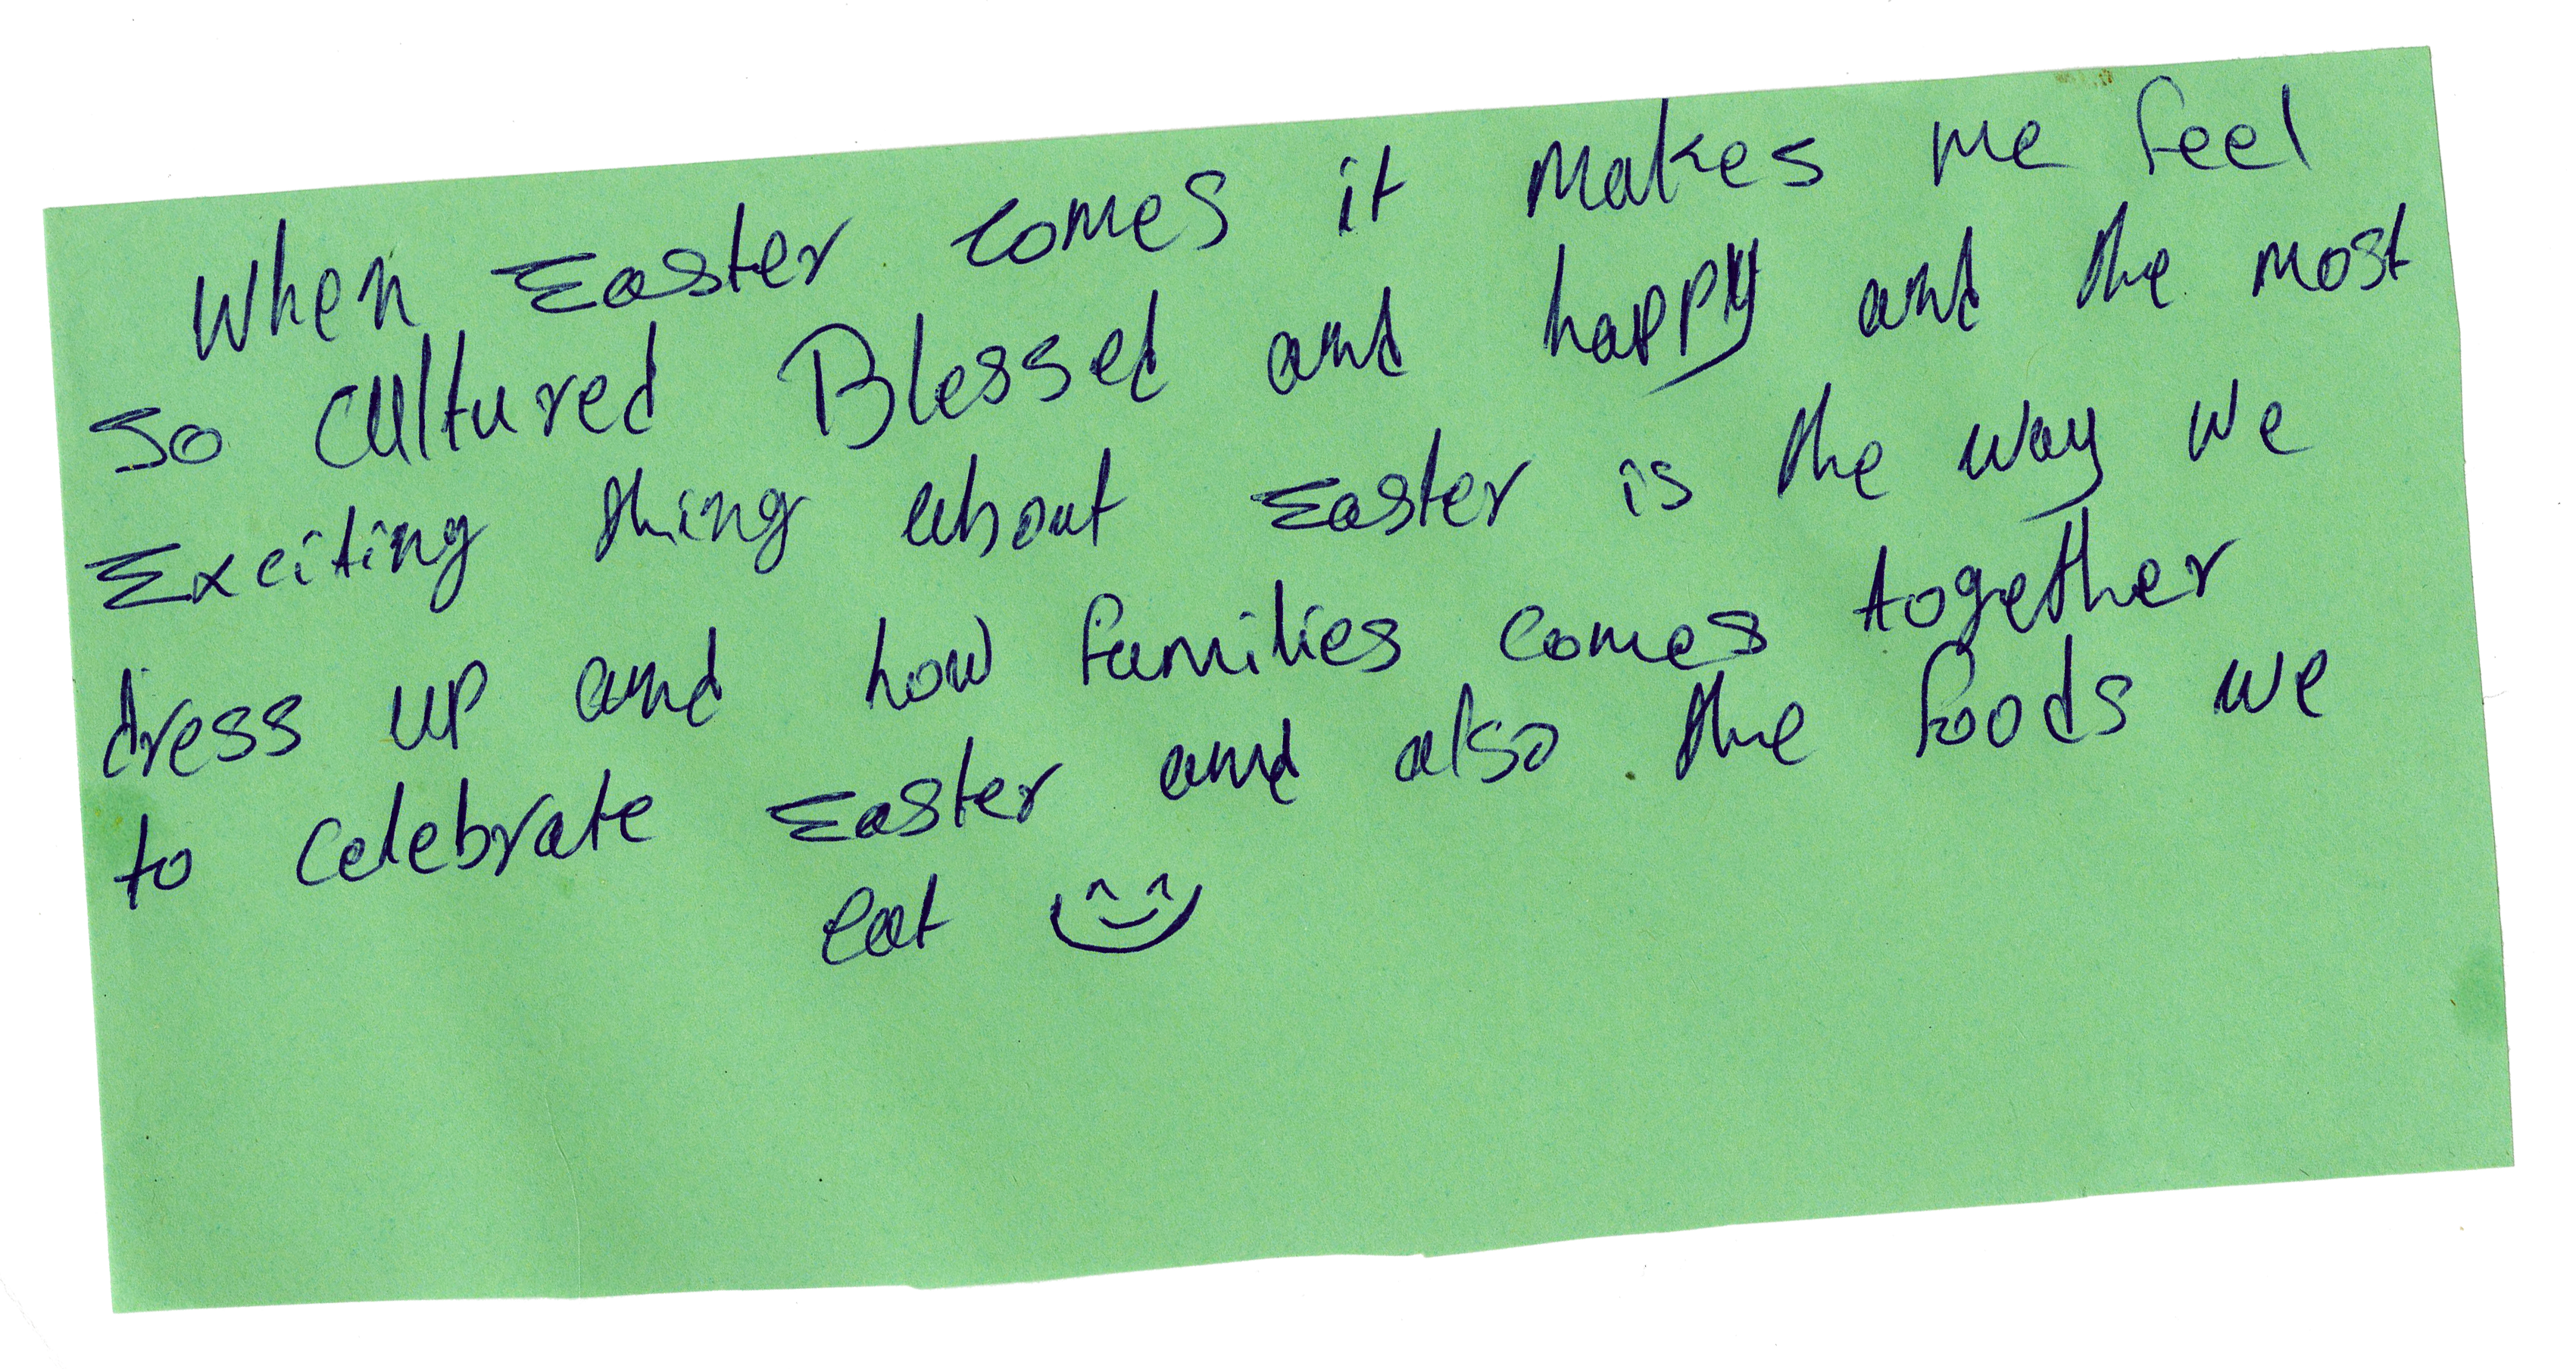 When Easter comes it makes me feel
so cultured Blessed and happy and the most
Exciting thing about Easter is the way we
dress up and how families comes together
to celebrate Easter and also the foods we
eat